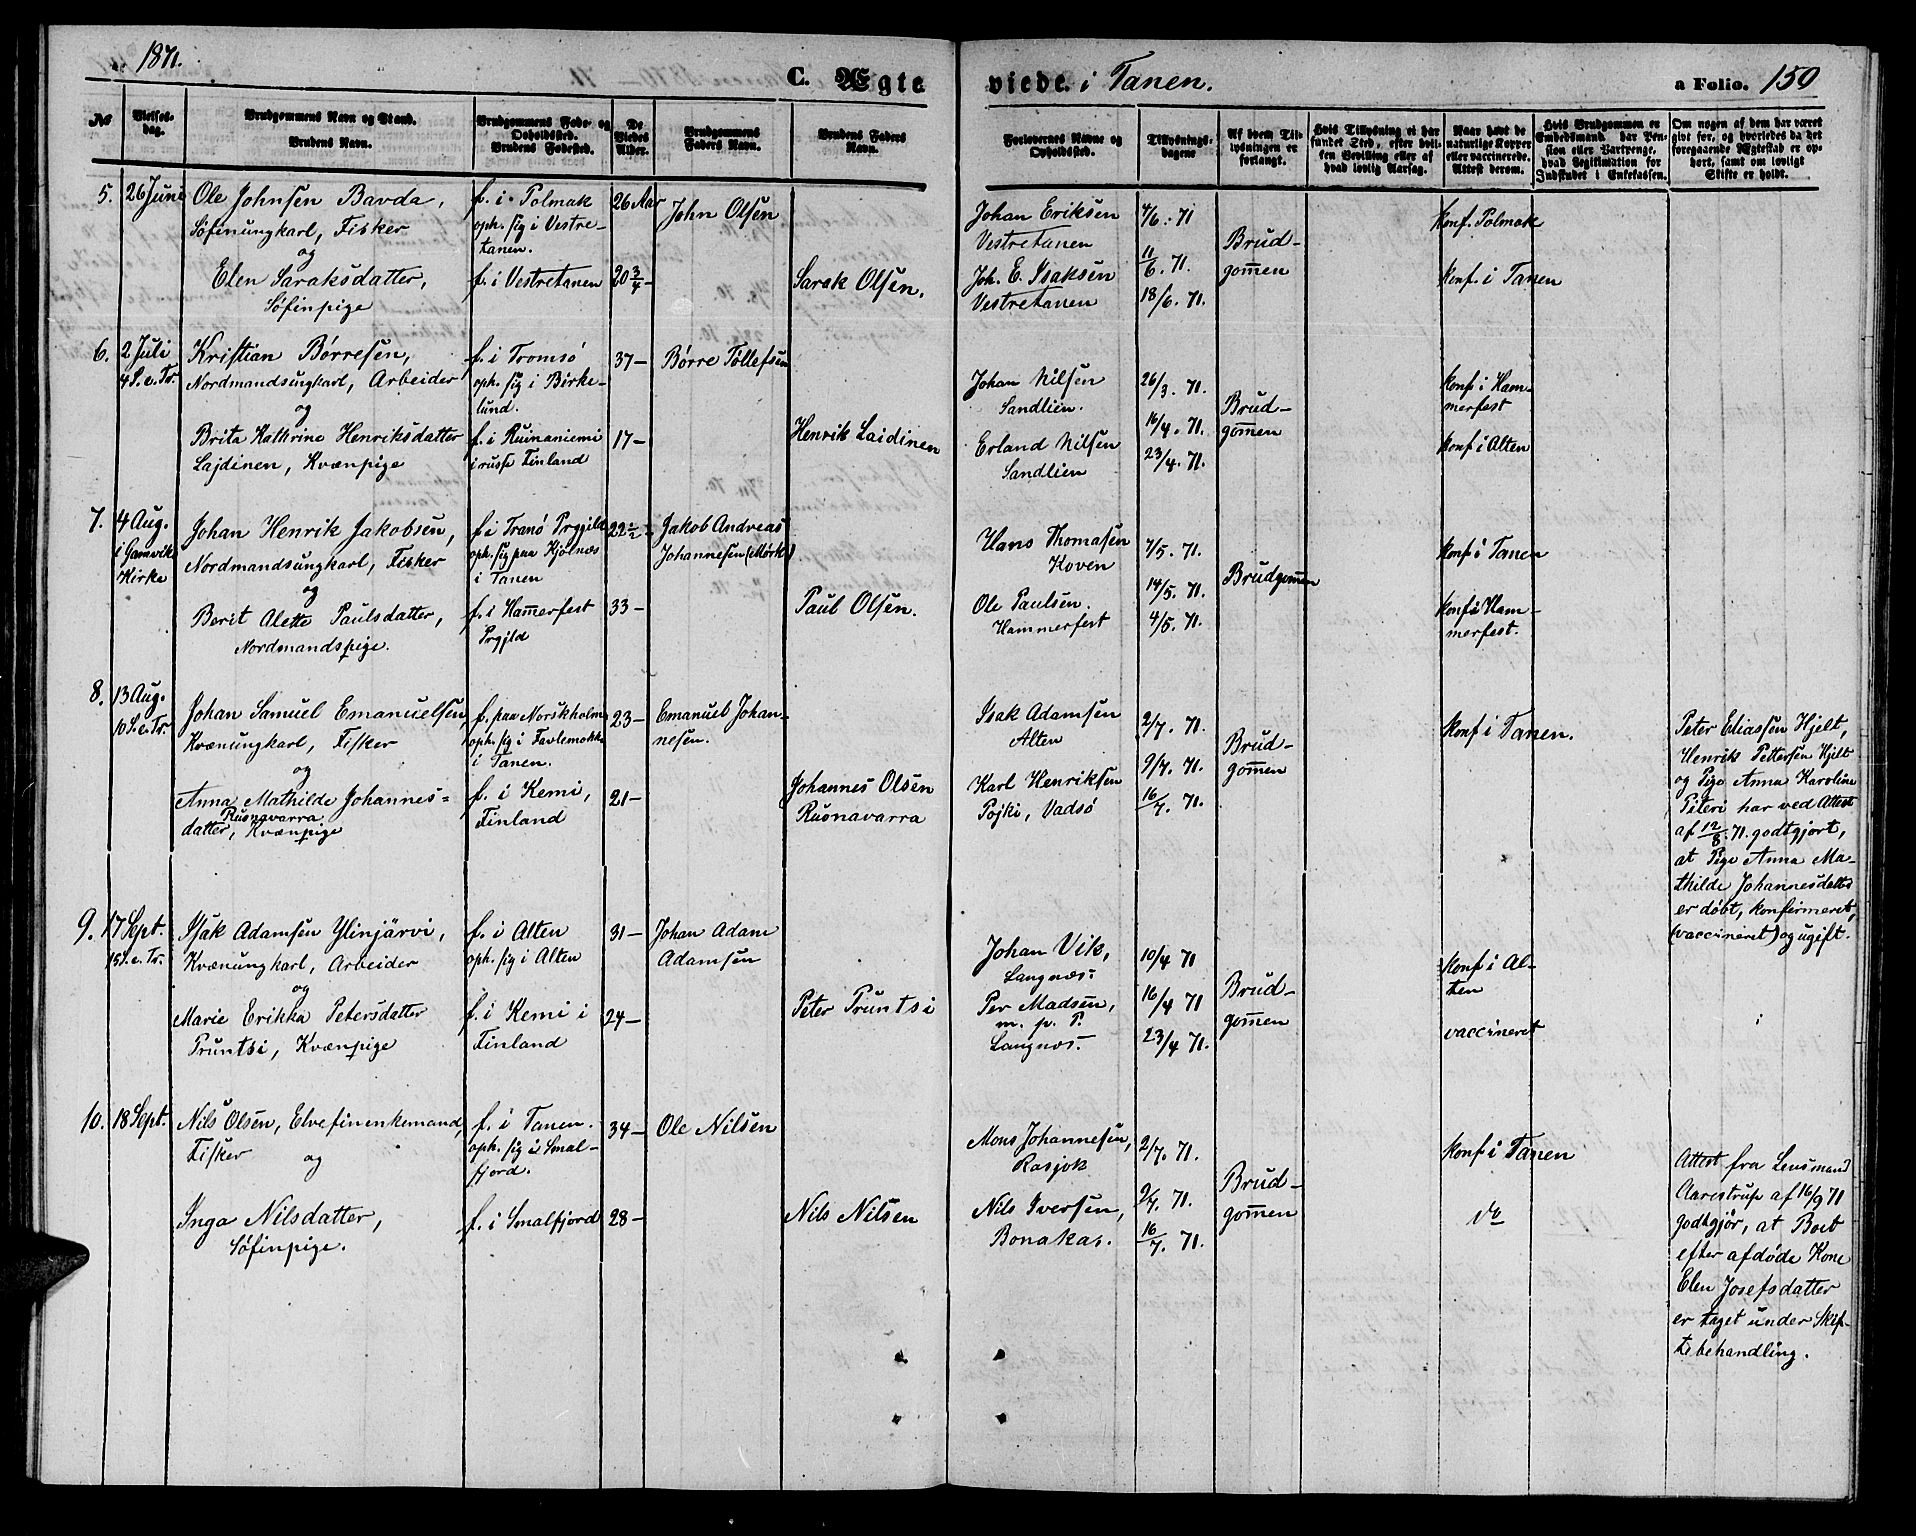 1871.
C. Ægteviede i Tanen.
a Folio. 150
No
Vielses-
dag.
Brudgommens Navn og Stand.
Brudens Navn.
Brudgommens Føde- og
Opholdssted.
Brudens Fødested.
De
Viedes
Alder.
Brudgommens
Faders Navn.
Brudens Faders
Navn.
Forlovernes Navne og
Opholdssted.
Tillysnings-
dagene
Af hvem Til-
lysningen er
forlangt.
Hvis Tillysning ei har
fundet Sted, efter hvil-
ken Bevilling eller af
hvad lovlig Aarsag.
Naar havt de
naturlige Kopper
eller vaccinerede.
Attest derom.
Hvis Brudgommen er
Embedsmand, har Pen-
sion eller Vartpenge,
hvad Legitimation for
Indskudet i Enkekassen.
Om nogen af dem har været
gift før, og hvorledes da det
foregaaende Ægteskab er op-
hørt, samt om lovligt
Skifte er holdt.
5. 26 Juni
Ole Johnsen Bavda,
Søfinungkarl, Fisker
og
Elen Saraksdatter,
Søfinpige
f. i Polmak
oph. sig i Vestre-
tanen.
f. i Vestretanen
26 Aar
20 3/4 —
John Olsen
Sarak Olsen.
Johan Eriksen
Vestretanen
Joh. E. Isaksen
Vestretanen
4/6. 71
11/6. 71.
18/6. 71.
Brud-
gom̄en
konf. Polmak
konf. i Tanen
6. 2 Juli
4 S. e. Tr.
Kristian Børresen,
Nordmandsungkarl, Arbeider
og
Brita Kathrine Henriksdatter
Lajdinen, Kvænpige
f. i Tromsø
oph. sig i Birke-
lund.
f. i Ruinaniemi
i russe Finland
37 —
17 —
Børre Tollefsen
Henrik Laidinen
Johan Nilsen
Sandlien.
Erland Nilsen
Sandlien
26/3. 71.
16/4. 71.
23/4. 71.
Brud-
gom̄en
konf. i Ham-
merfest
konf. i Alten
7. 4 Aug.
i Gamvik
Kirke
Johan Henrik Jakobsen,
Nordmandsungkarl, Fisker
og
Berit Alette Paulsdatter,
Nordmandspige.
f. i Tranø Prgjld
oph. sig paa Kjølnæs
i Tanen
f. i Ham̄erfest
Prgjld
22 1/2 —
33 —
Jakob Andreas
Johannesen (Mørk)
Paul Olsen.
Hans Thomasen
Koven
Ole Paulsen.
Hammerfest
7/5. 71.
14/5. 71.
4/5. 71.
Brudgom̄en
konf i Tanen
konf i Ham-
merfest.
8. 13 Aug.
10 S. e. Tr.
Johan Samuel Emanuelsen,
Kvænungkarl, Fisker
og
Anna Mathilde Johannes-
Rusnavarra
datter, Kvænpige
f. paa Norskholm
oph. sig i Favlemokk
i Tanen.
f. i Kemi,
Finland
23 —
21 —
Emanuel Johan-
nesen.
Johannes Olsen
Rusnavarra
Isak Adamsen
Alten
Karl Henriksen
Pojki, Vadsø
2/7. 71.
9/7. 71.
16/7. 71.
Brud-
gom̄en
konf i Tanen.
Peter Eliassen Hjelt,
Henrik Pettersen Hjelt
og Pige Anna Karoline
Piteri har ved Attest
af 12/8. 71. godtgjort,
at Pige Anna Ma-
thilde Johannesdatter
er døbt, konfirmeret,
(vaccineret) og ugift.
9. 17 Sept.
15 S. e. Tr.
Isak Adamsen Ylinjärvi,
Kvænungkarl, Arbeider
og
Marie Erikka Petersdatter
Pruntsi, Kvænpige
f. i Alten
oph. sig i Alten
f. i Kemi i
Finland
31 —
24 —
Johan Adam
Adamsen
Peter Pruntsi
Johan Vik,
Langnæs.
Per Madsen,
m. p. P.
Langnæs.
10/4 71
16/4 71
23/4 71.
Brud-
gom̄en
konf i Al-
ten
vaccineret
10. 18 Sept.
Nils Olsen, Elvefinenkemand,
Fisker og
Inga Nilsdatter,
Søfinpige.
f. i Tanen.
oph. sig i Smal-
fjord.
f. i Smalfjord
34 —
28 —
Ole Nilsen
Nils Nilsen
Mons Johannesen,
Rasjok
Nils Iversen,
Bonakas.
2/7. 71.
9/7. 71.
16/7. 71.
Brud-
gom̄en
konf i Tanen
do
Attest fra Lensmand
Aarestrup af 16/9 71
godtgjør, at Boet
efter afdøde Kone
Elen Josefsdatter
er taget under Skif-
tebehandling.